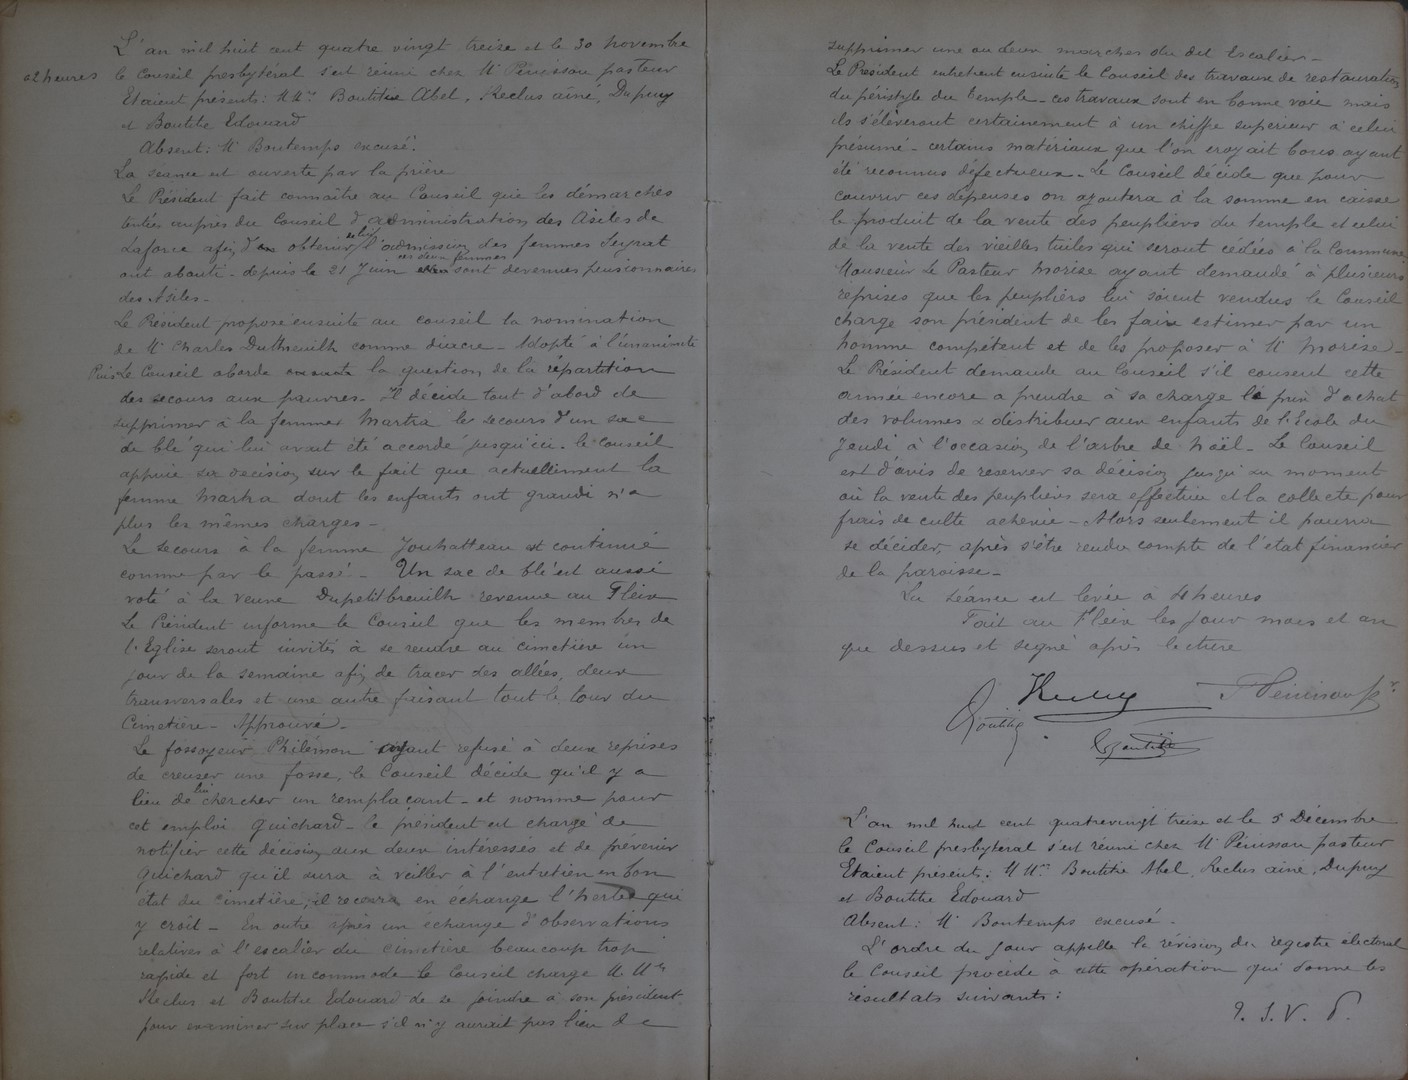 L'an mil huit cent quatre vingt treise et le 30 novembre
02 heures le Conseil presbytéral s'est réuni chez Mr Pénissou pasteur
Etaient présents: MMrs Boutitie Abel, Reclus aîné, Dupuy
et Boutitie Edouard
Absent: Mr Bontemps excusé.
La séance est ouverte par la prière
Le Président fait connaître au Conseil que les démarches
tentées auprès du Conseil d'administration des Asiles de
Laforce afin d'en obtenir l'admission des femmes Seyrat
ont abouti - depuis le 21 Juin ces deux femmes sont devenues pensionnaires
des Asiles -
Le Président propose ensuite au conseil la nomination
de Mr Charles Dutheuilh comme diacre - Adopté à l'unanimité
Puis Le Conseil aborde ensuite la question de la répartition
des secours aux pauvres - Il décide tout d'abord de
supprimer à la femme Martra le secours d'un sac
de blé qui lui avait été accordé jusqu'ici - le conseil
appuie sa décision sur le fait que actuellement la
femme Martra dont les enfants ont grandi n'a
plus les mêmes charges -
Le secours à la femme Jouhatteau est continué
comme par le passé - Un sac de blé est aussi
voté à la veuve Dupetitbreuilh revenue au Fleix
Le Président informe le Conseil que les membres de
l'Eglise seront invités à se rendre au cimetière un
jour de la semaine afin de tracer des allées, deux
transversales et une autre faisant tout le tour du
Cimetière - Approuvé -
Le fossoyeur Philémon ayant refusé à deux reprises
de creuser une fosse, le Conseil décide qu'il y a
lieu de lui chercher un remplaçant - et nomme pour
cet emploi Guichard - le président est chargé de
notifier cette décision aux deux intéressés et de prévenir
Guichard qu'il aura à veiller à l'entretien en bon
état du cimetière; il recevra en échange l'herbe qui
y croît - En outre après un échange d'observations
relatives à l'escalier du cimetière beaucoup trop
rapide et fort incommode le Conseil charge MMrs
Reclus et Boutitie Edouard de se joindre à son président
pour examiner sur place s'il n'y aurait pas lieu de
supprimer une ou deux marches du dit Escalier -
Le Président entretient ensuite le Conseil des travaux de restauration
du péristyle du temple - ces travaux sont en bonne voie mais
ils s'élèveront certainement à un chiffre supérieur à celui
présumé - certains matériaux que l'on croyait bons ayant
été reconnus défectueux - Le Conseil décide que pour
couvrir ces dépenses on ajoutera à la somme en caisse
le produit de la vente des peupliers du temple et celui
de la vente des vieilles tuiles qui seront cédées à la Commune
Monsieur Le Pasteur Morize ayant demandé à plusieurs
reprises que les peupliers lui soient vendus le Conseil
charge son président de les faire estimer par un
homme compétent et de les proposer à Mr Morize -
Le Président demande au Conseil s'il consent cette
année encore à prendre à sa charge le prix d'achat
des volumes à distribuer aux enfants de l'Ecole du
Jeudi à l'occasion de l'arbre de Noël - Le Conseil
est d'avis de réserver sa décision jusqu'au moment
où la vente des peupliers sera effectuée et la collecte pour
frais de culte achevée - Alors seulement il pourra
se décider, après s'être rendu compte de l'état financier
de la paroisse -
La séance est levée à 4 heures
Fait au Fleix les jour mois et an
que dessus et signé après lecture
Boutitie
L'an mil huit cent quatrevingt treise et le 5 Décembre
le Conseil presbytéral s'est réuni chez Mr Pénissou pasteur
Etaient présents: MMrs Boutitie Abel, Reclus aîné, Dupuy
et Boutitie Edouard
Absent: Mr Bontemps excusé -
L'ordre du jour appelle la révision du registre électoral
le Conseil procède à cette opération qui donne les
résultats suivants:
T. S. V. P.